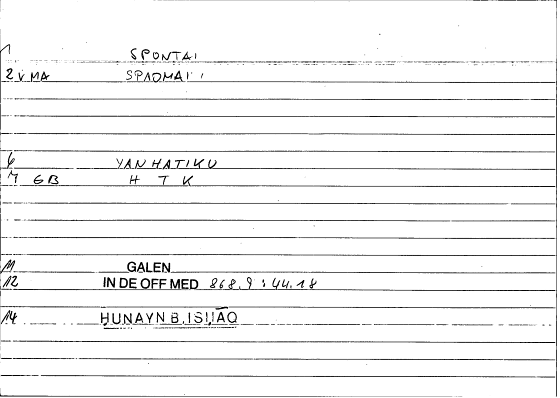 1 SPONTAI
2 VMA SPADMAI
6 YANHATIKU
7 GB H T K
11 GALEN
12 IN DE OFF MED 868.9 : 44.18
14 ḤUNAYN B. ISḤĀQ